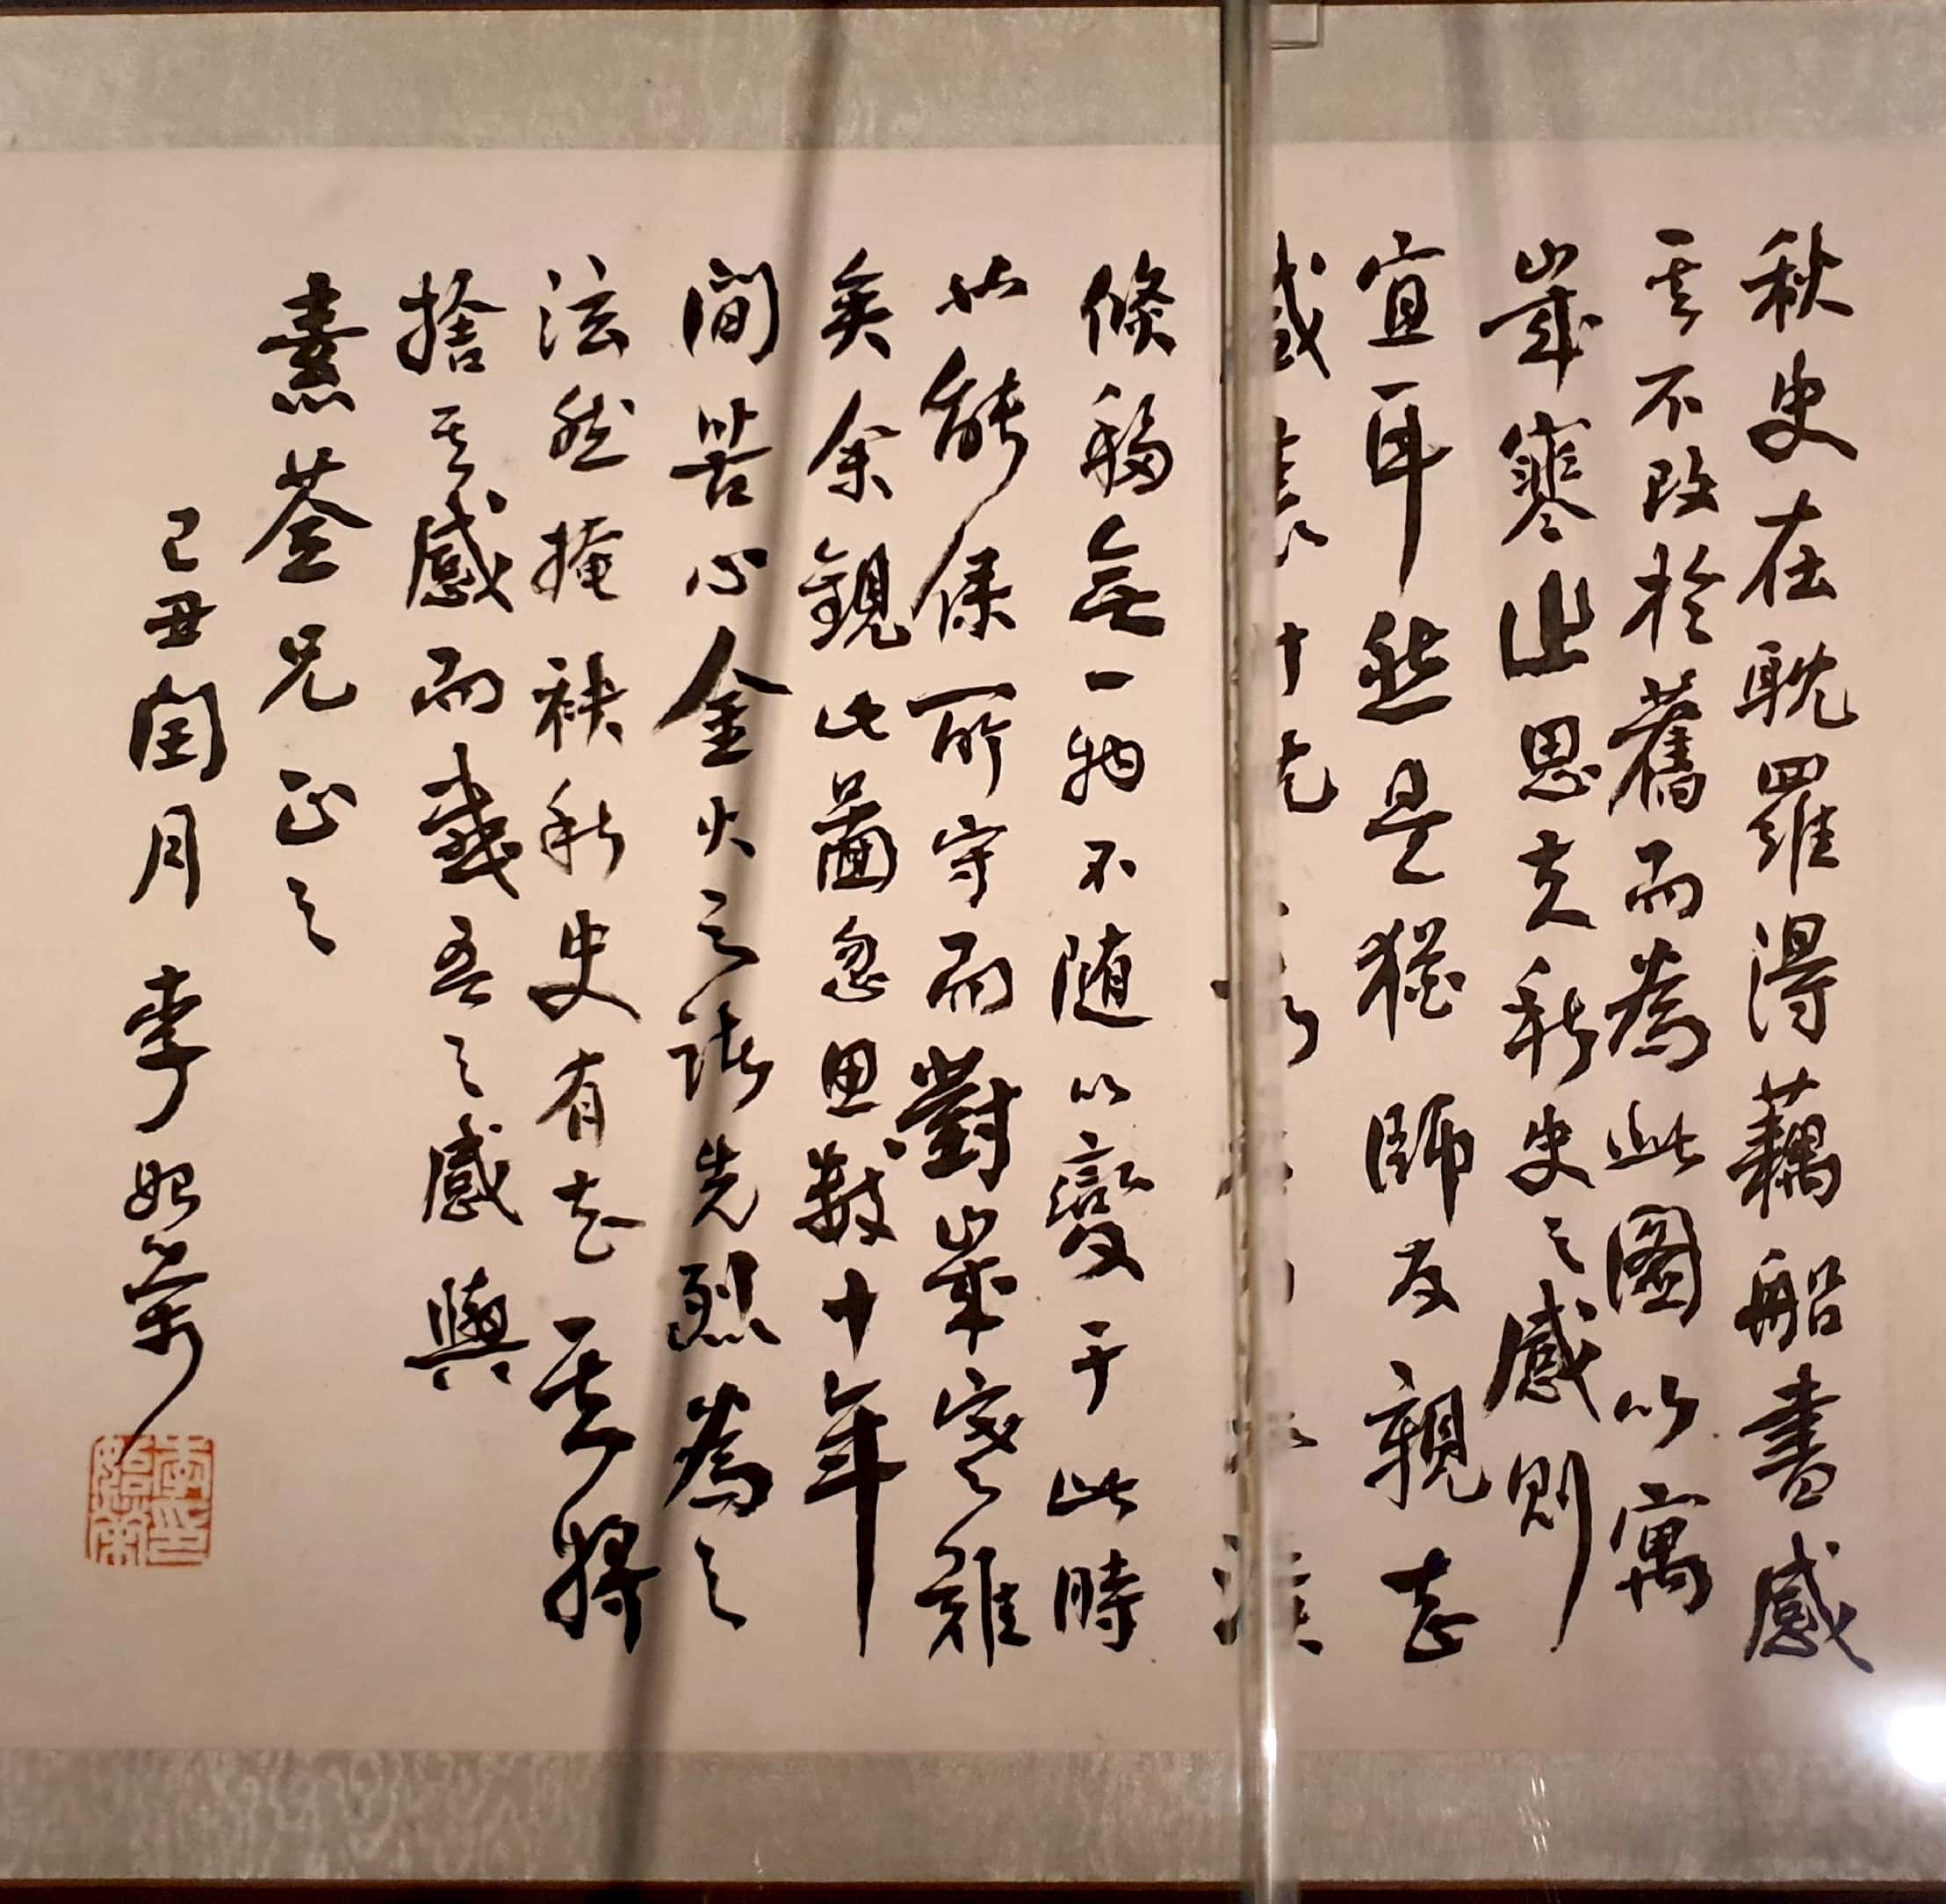 秋史在耽羅得藕船書感
其不改於舊而爲此圖以寓
歲寒之思夫秋史之感則
宜耳然是猶師友親知
感
倏移無一物不隨以變于此時
能保所守而對歲寒難
矣余觀此圖忽思數十年
間苦心金火之諸先烈爲之
泫然掩袂秋史有知其將
捨其感而吾之感與
素荃兄正之
己丑閏月李始榮